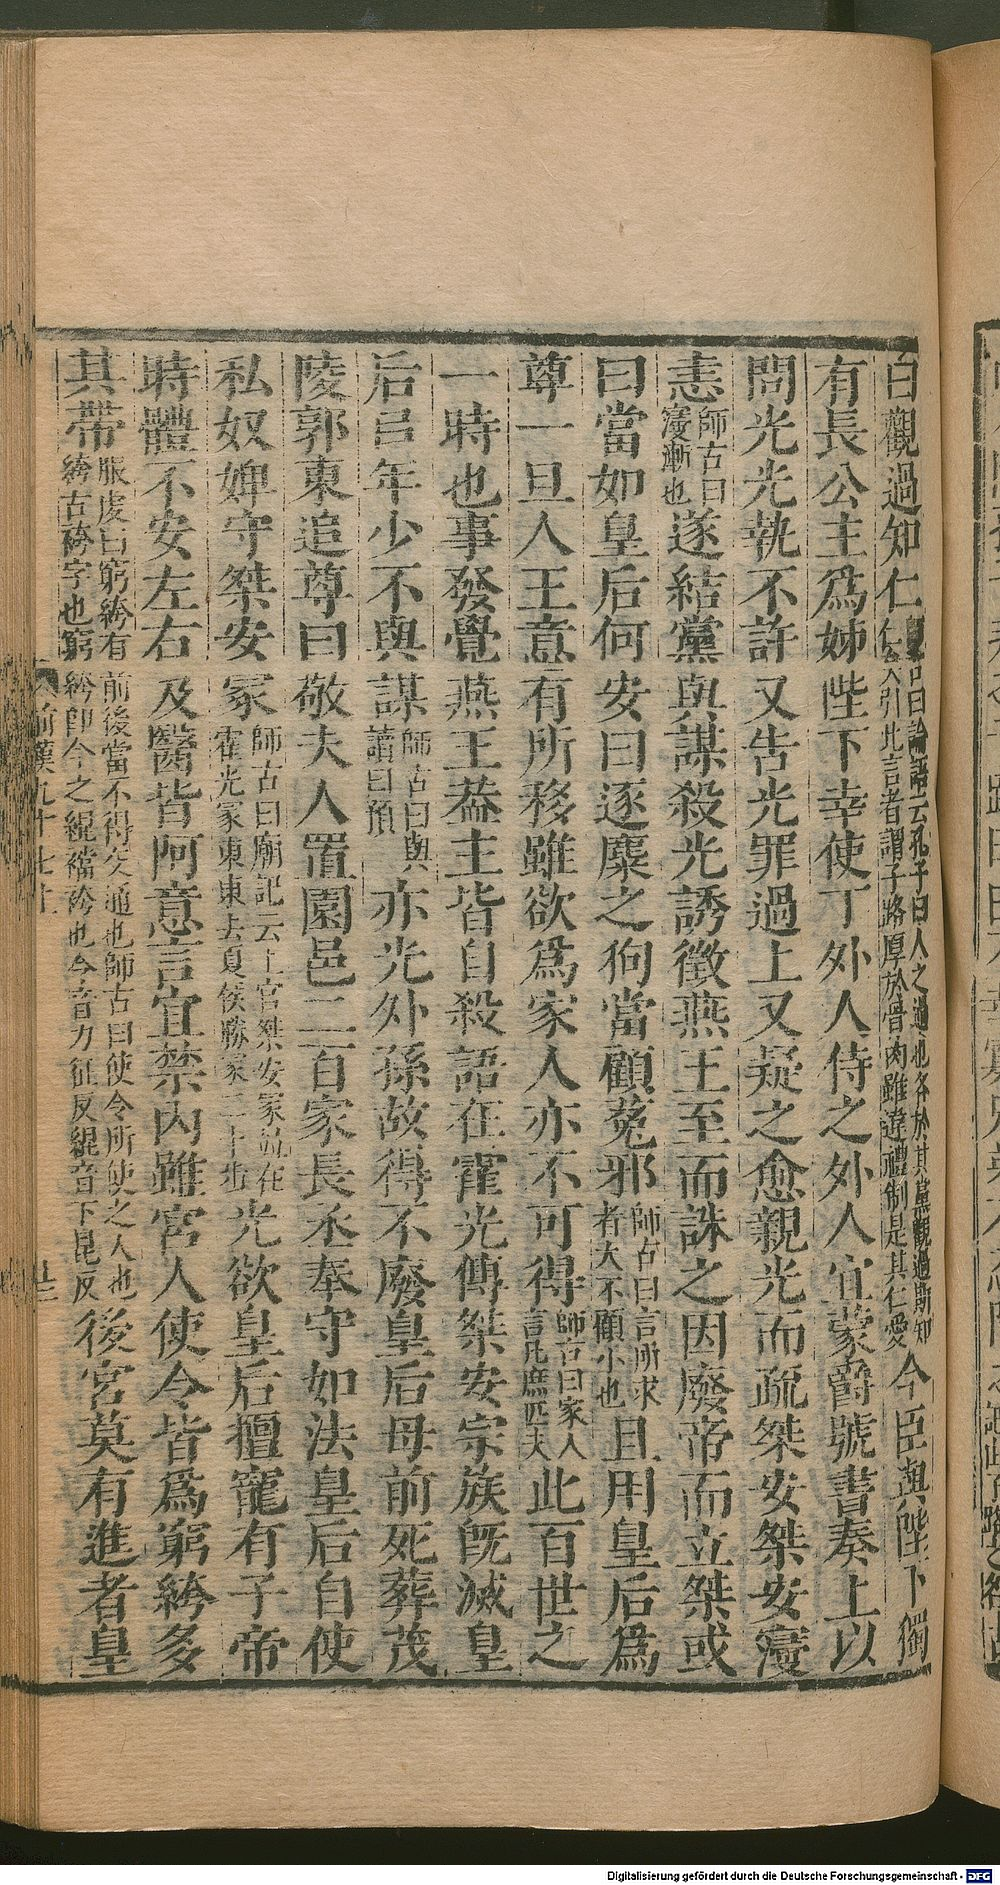 曰觀過知仁師古曰論語云孔子曰人之過也各於其黨觀過斯知仁矣引此言者謂子路厚於骨肉雖違禮制是其仁愛今臣與陛下獨
有長公主爲姊陛下幸使丁外人侍之外人宜蒙爵號書奏上以
問光光執不許又告光罪過上又疑之愈親光而疏桀安桀安寖
恚師古曰寖漸也遂結黨與謀殺光誘徵燕王至而誅之因廢帝而立桀或
曰當如皇后何安曰逐麋之狗當顧菟邪師古曰言所求者大不顧小也且用皇后爲
尊一旦人主意有所移雖欲爲家人亦不可得師古曰家人言凡庶匹夫此百世之
一時也事發覺燕王葢主皆自殺語在霍光傳桀安宗族旣滅皇
后㠯年少不與謀師古曰與讀曰預亦光外孫故得不廢皇后母前死葬茂
陵郭東追尊曰敬夫人置園邑二百家長丞奉守如法皇后自使
私奴婢守桀安冢師古曰廟記云上官桀安冢並在霍光冢東東去夏侯勝冢二十步光欲皇后擅寵有子帝
時體不安左右及醫皆阿意言宜禁內雖宮人使令皆爲窮絝多
其帶服虔曰窮絝有前後當不得交通也師古曰使令所使之人也絝古袴字也窮絝卽今之緄襠袴也令音力征反緄音下昆反後宮莫有進者皇
前漢九十七上
Digitalisierung gefördert durch die Deutsche Forschungsgemeinschaft - DFG